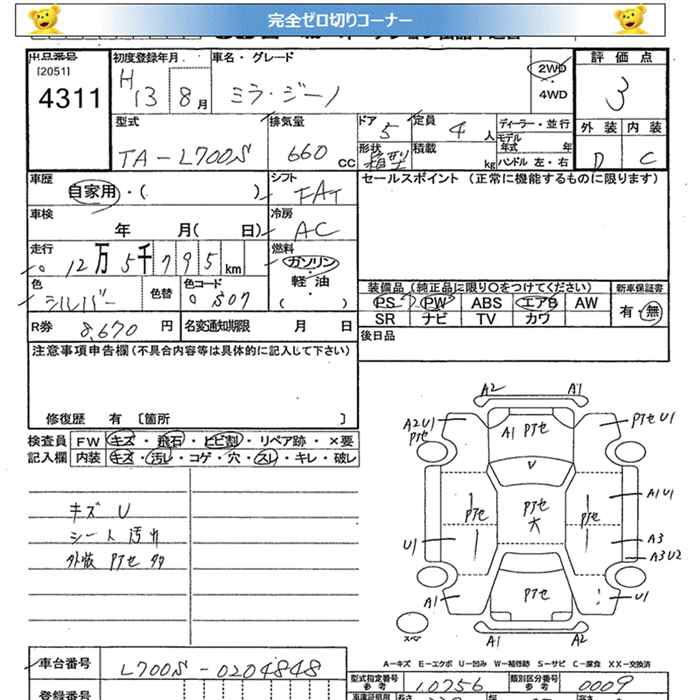 完全ゼロ切りコーナー
出品番号 初度登録年月 車名・グレード 評価点
[2051] 2WD
4311 H13 8月 ミラ・ジーノ 4WD 3
型式 排気量 ドア 定員 ディーラー・並行 外装 内装
5 4人 モデル年式 年
TA-L700S 660cc 形状 積載 kg ハンドル 左・右 D C
車歴 シフト セールスポイント(正常に機能するものに限ります)
自家用・( ) FAT
車検 冷房
年 月( 日) AC
走行 燃料
12万5千795km ガソリン
色 色替 色コード 軽油 装備品(純正品に限り○をつけてください) 新車保証書
シルバー S07 ( ) PS PW ABS エアB AW 有・無
R券 8,670円 名変通知期限 月 日 SR ナビ TV カワ
注意事項申告欄(不具合内容等は具体的に記入して下さい) 後日品
修復歴 有 [箇所 ]
検査員 FW キズ・飛石・ヒビ割・リペア跡・×要
記入欄 内装 キズ・汚レ・コゲ・穴・スレ・キレ・破レ
キズ U
シート汚れ
外装 PTセ 多
A2 A1
A2U1 PTセ A1 PTセ PTセ U1
V
PTセ PTセ 大 PTセ A1U1
U1 A3
A3U2
A1 PTセ U1
スペア A1 A2
A-キズ E-エクボ U-凹み W-補修跡 S-サビ C-腐食 XX-交換済
車台番号 L700S-0204848 型式指定番号 参考 10756 類別区分番号 参考 0009
登録番号